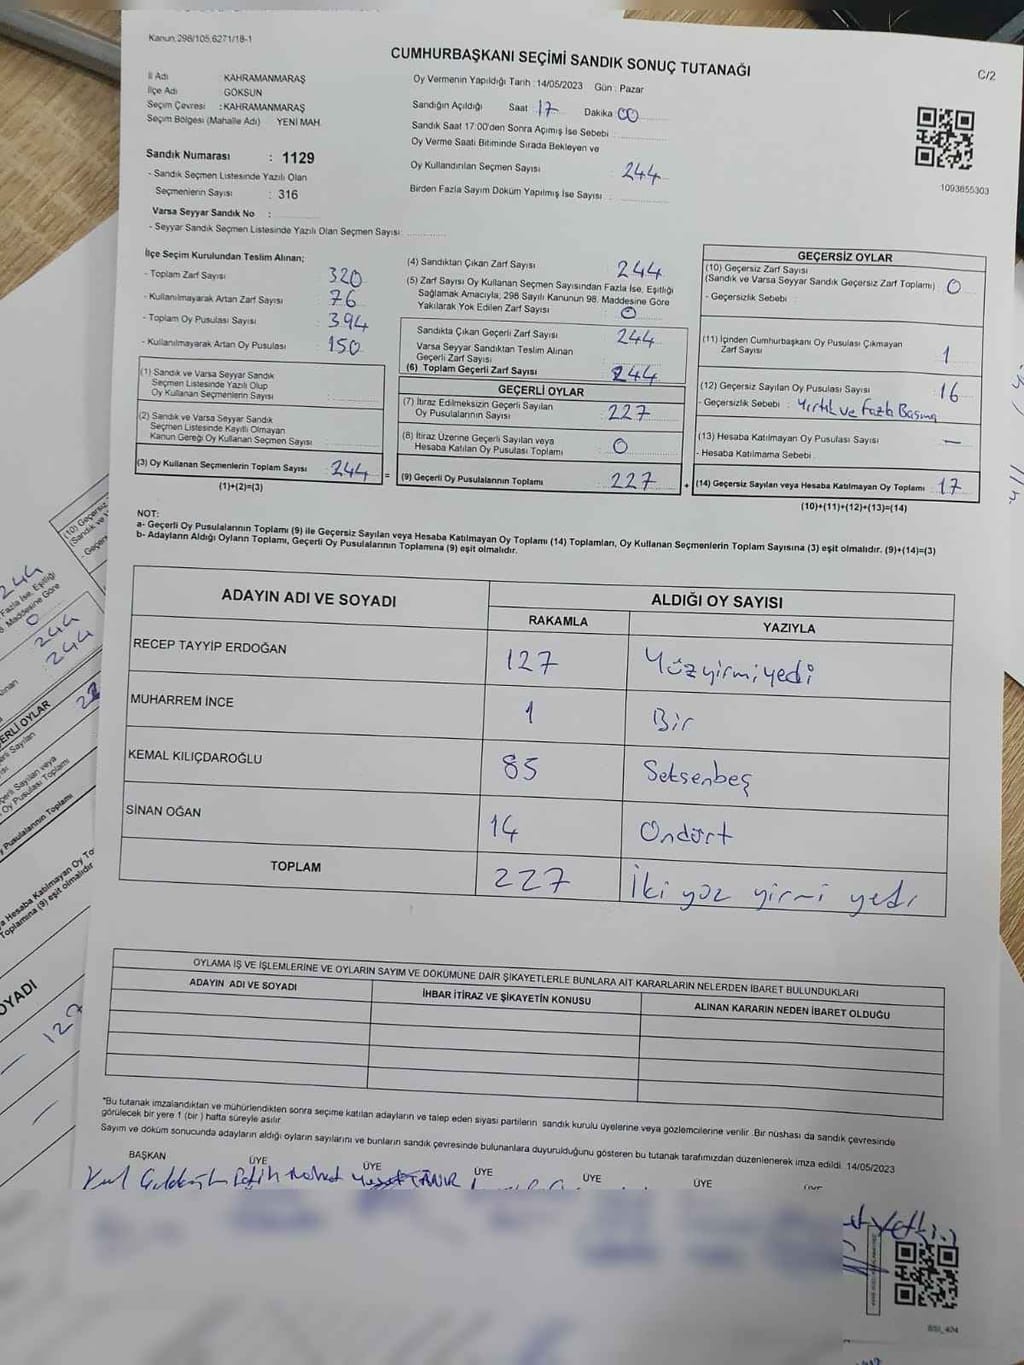 Kanun,298/105,6271/18-1
CUMHURBAŞKANI SEÇİMİ SANDIK SONUÇ TUTANAĞI
C/2
İl Adı : KAHRAMANMARAŞ
İlçe Adı : GÖKSUN
Seçim Çevresi : KAHRAMANMARAŞ
Seçim Bölgesi (Mahalle Adı) YENİ MAH.
Sandık Numarası : 1129
- Sandık Seçmen Listesinde Yazılı Olan
Seçmenlerin Sayısı : 316
Varsa Seyyar Sandık No :
- Seyyar Sandık Seçmen Listesinde Yazılı Olan Seçmen Sayısı:
Oy Vermenin Yapıldığı Tarih : 14/05/2023 Gün : Pazar
Sandığın Açıldığı Saat 17 Dakika 00
Sandık Saat 17:00'den Sonra Açımış İse Sebebi
Oy Verme Saati Bitiminde Sırada Bekleyen ve
Oy Kullandırılan Seçmen Sayısı : 244
Birden Fazla Sayım Döküm Yapılmış İse Sayısı :
1093855303
İlçe Seçim Kurulundan Teslim Alınan;
- Toplam Zarf Sayısı : 320
- Kullanılmayarak Artan Zarf Sayısı : 76
- Toplam Oy Pusulası Sayısı : 394
- Kullanılmayarak Artan Oy Pusulası : 150
(1) Sandık ve Varsa Seyyar Sandık
Seçmen Listesinde Yazılı Olup
Oy Kullanan Seçmenlerin Sayısı :
(2) Sandık ve Varsa Seyyar Sandık
Seçmen Listesinde Kayıtlı Olmayan
Kanun Gereği Oy Kullanan Seçmen Sayısı :
(3) Oy Kullanan Seçmenlerin Toplam Sayısı : 244 =
(1)+(2)=(3)
(4) Sandıktan Çıkan Zarf Sayısı : 244
(5) Zarf Sayısı Oy Kullanan Seçmen Sayısından Fazla İse, Eşitliği
Sağlamak Amacıyla, 298 Sayılı Kanunun 98. Maddesine Göre
Yakılarak Yok Edilen Zarf Sayısı : 0
Sandıkta Çıkan Geçerli Zarf Sayısı : 244
Varsa Seyyar Sandıktan Teslim Alınan
Geçerli Zarf Sayısı
(6) Toplam Geçerli Zarf Sayısı : 244
GEÇERLİ OYLAR
(7) İtiraz Edilmeksizin Geçerli Sayılan
Oy Pusulalarının Sayısı : 227
(8) İtiraz Üzerine Geçerli Sayılan veya
Hesaba Katılan Oy Pusulası Toplamı : 0
(9) Geçerli Oy Pusulalarının Toplamı : 227 +
GEÇERSİZ OYLAR
(10) Geçersiz Zarf Sayısı
(Sandık ve Varsa Seyyar Sandık Geçersiz Zarf Toplamı) : 0
- Geçersizlik Sebebi :
(11) İçinden Cumhurbaşkanı Oy Pusulası Çıkmayan
Zarf Sayısı : 1
(12) Geçersiz Sayılan Oy Pusulası Sayısı : 16
- Geçersizlik Sebebi : Yırtık ve Fazla Basma
(13) Hesaba Katılmayan Oy Pusulası Sayısı : —
- Hesaba Katılmama Sebebi :
(14) Geçersiz Sayılan veya Hesaba Katılmayan Oy Toplamı : 17
(10)+(11)+(12)+(13)=(14)
NOT:
a- Geçerli Oy Pusulalarının Toplamı (9) ile Geçersiz Sayılan veya Hesaba Katılmayan Oy Toplamı (14) Toplamları, Oy Kullanan Seçmenlerin Toplam Sayısına (3) eşit olmalıdır. (9)+(14)=(3)
b- Adayların Aldığı Oyların Toplamı, Geçerli Oy Pusulalarının Toplamına (9) eşit olmalıdır.
ADAYIN ADI VE SOYADI
ALDIĞI OY SAYISI
RAKAMLA YAZIYLA
RECEP TAYYİP ERDOĞAN 127 Yüzyirmiyedi
MUHARREM İNCE 1 Bir
KEMAL KILIÇDAROĞLU 85 Seksenbeş
SİNAN OĞAN 14 Ondört
TOPLAM 227 İki yüz yirmi yedi
OYLAMA İŞ VE İŞLEMLERİNE VE OYLARIN SAYIM VE DÖKÜMÜNE DAİR ŞİKAYETLERLE BUNLARA AİT KARARLARIN NELERDEN İBARET BULUNDUKLARI
ADAYIN ADI VE SOYADI
İHBAR İTİRAZ VE ŞİKAYETİN KONUSU
ALINAN KARARIN NEDEN İBARET OLDUĞU
*Bu tutanak imzalandıktan ve mühürlendikten sonra seçime katılan adayların ve talep eden siyasi partilerin sandık kurulu üyelerine veya gözlemcilerine verilir. Bir nüshası da sandık çevresinde
görülecek bir yere 1 (bir) hafta süreyle asılır.
Sayım ve döküm sonucunda adayların aldığı oyların sayılarını ve bunların sandık çevresinde bulunanlara duyurulduğunu gösteren bu tutanak tarafımızdan düzenlenerek imza edildi. 14/05/2023
BAŞKAN ÜYE ÜYE ÜYE ÜYE ÜYE